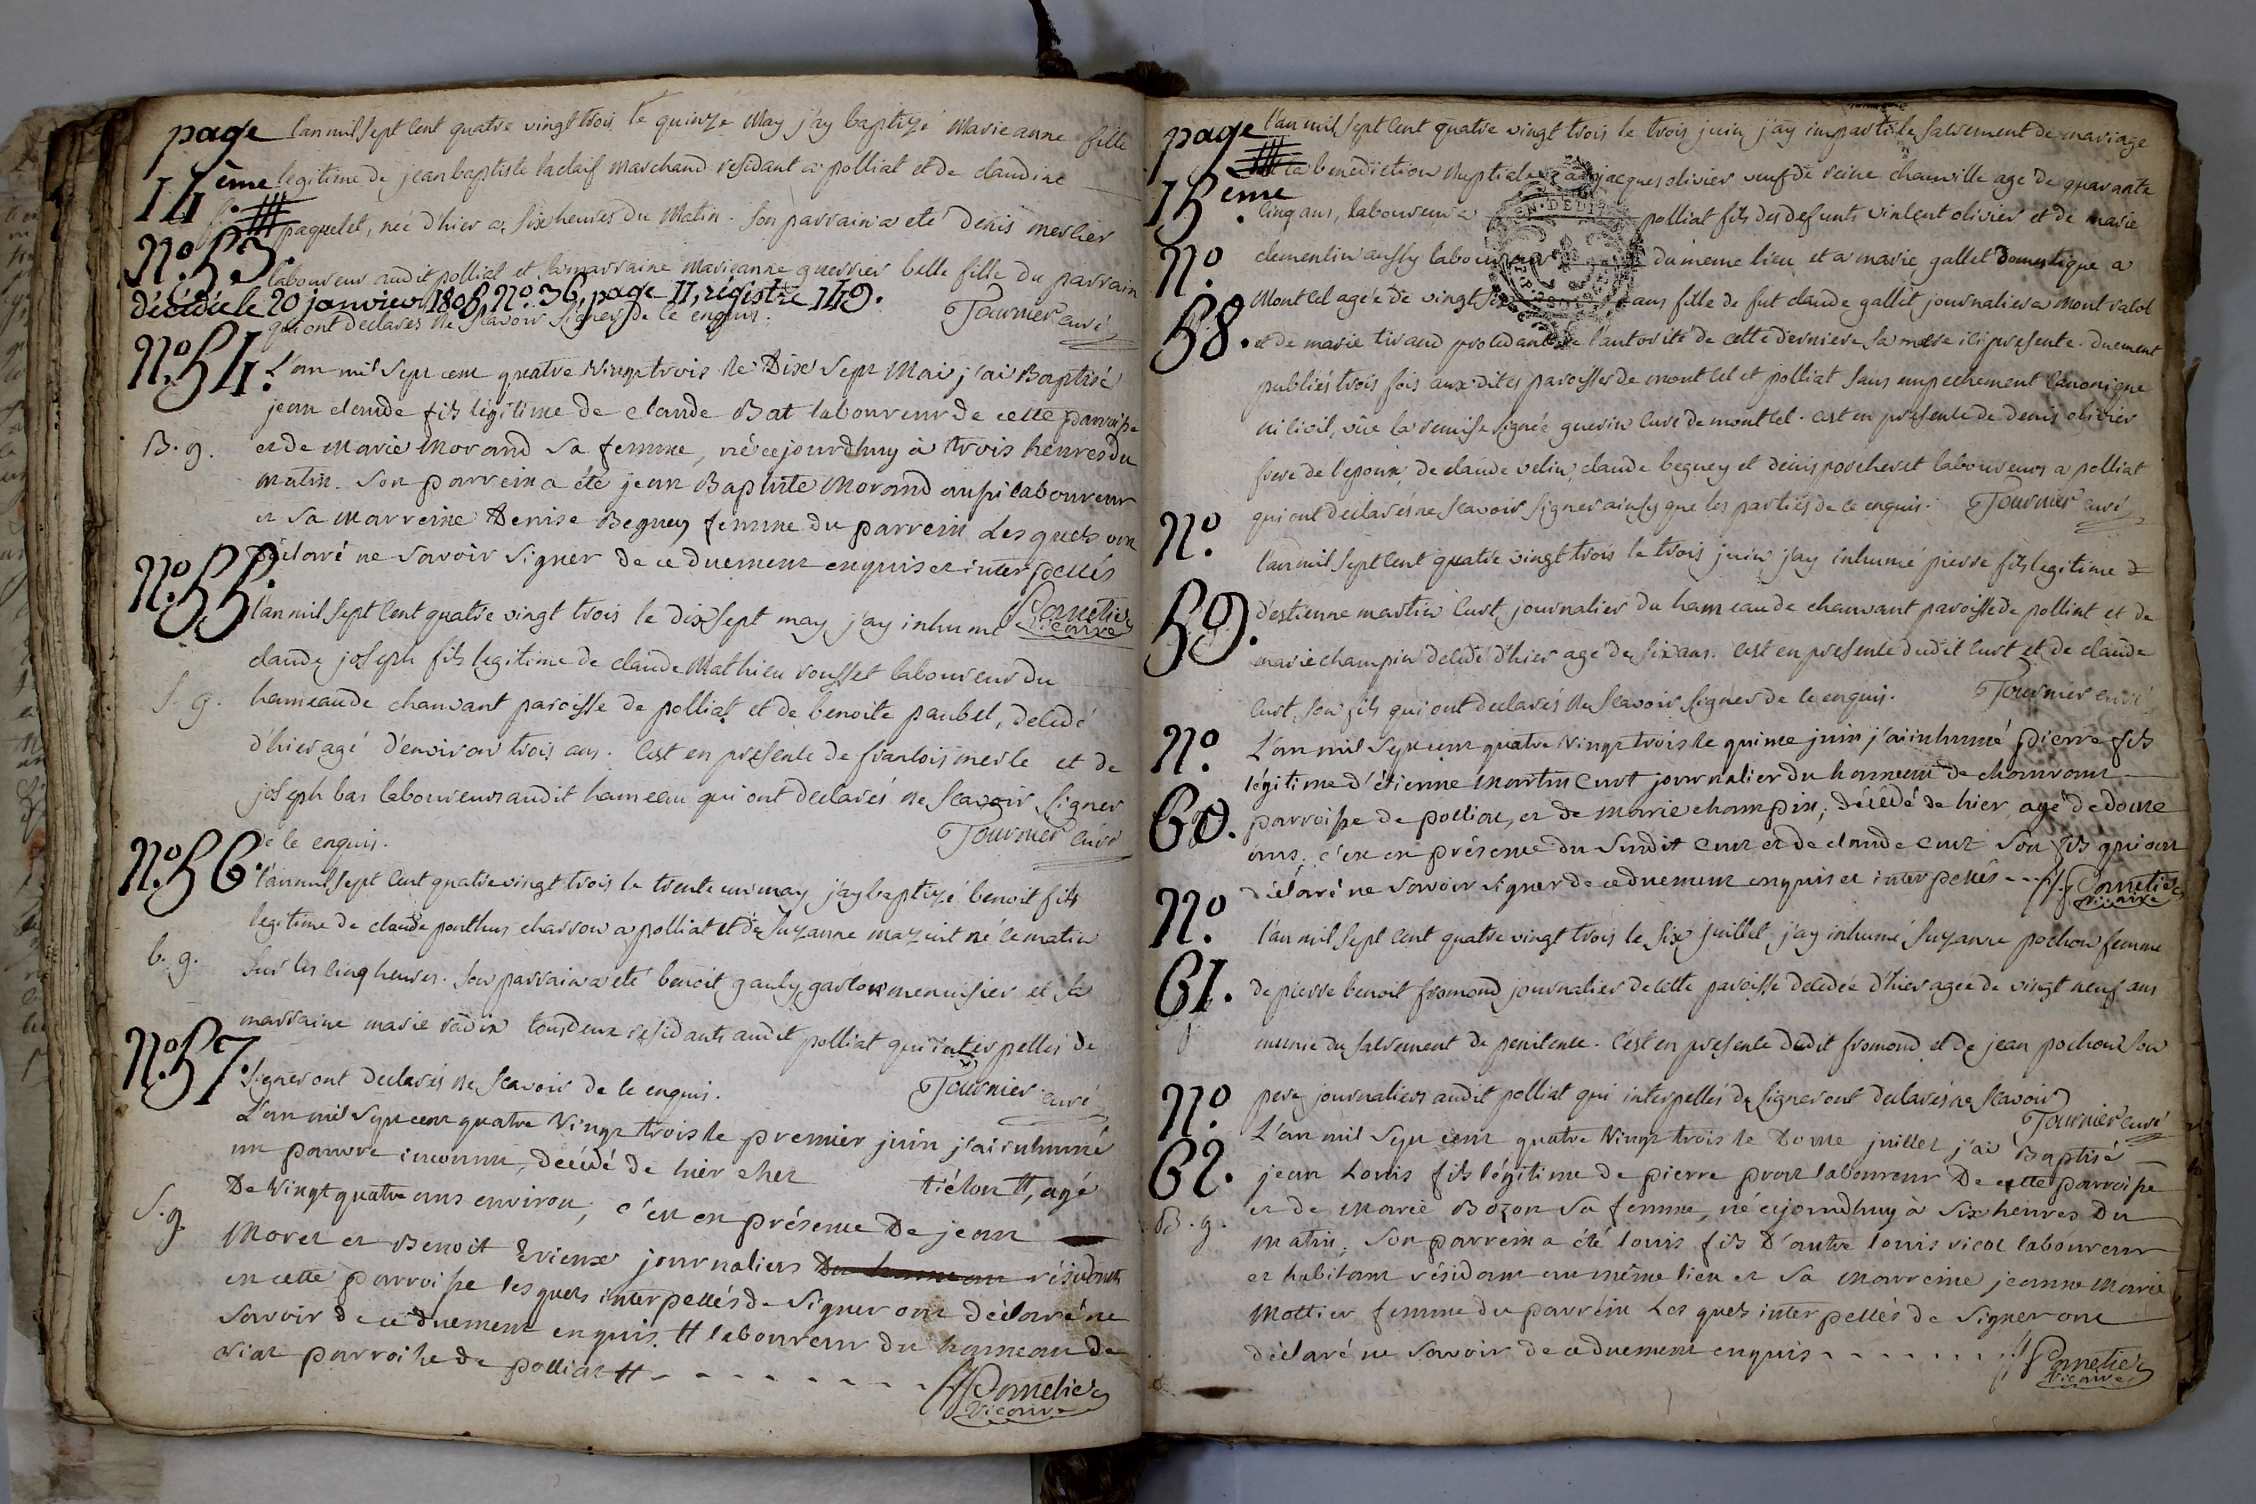 page
14ème
l'an mil sept cent quatre vingt trois le quinze May j'ay baptizé Marieanne fille
legitime de jean baptiste laclaif Marchand residant a polliat et de claudine
paquelet, née d'hier a six heures du Matin. son parrain a eté denis merlier
N.o 53.
laboureur audit polliat et la marraine Marieanne guerrier belle fille du parrain
décédée le 20 janvier 1808, N.o 36, page 11, régistre 149.
qui ont declarés ne scavoir signer de ce enquis. Tournier curé
N.o 54.
L'an mil sept cent quatre Vingt trois le Dix sept Mai j'ai Baptisé
jean claude fils légitime de claude Bat laboureur de cette parroisse
B. g.
et de Marie Morand sa femme, né cejourdhuy à trois heures du
matin. Son parrein a été jean Baptiste Morand aussi laboureur
et sa Marreine Denise Beguey femme du parrein Lesquels ont
déclaré ne savoir signer de ce duement enquis et interpellés
Cornetier vicaire
N.o 55.
l'an mil sept cent quatre vingt trois le dix sept may j'ay inhumé
claude joseph fils legitime de claude Mathieu rousset laboureur du
S. g.
hameau de chauvant paroisse de polliat et de benoite paubel, decedé
d'hier agé d'environ trois ans. c'est en presence de francois merle et de
joseph bas laboureurs audit hameau qui ont declarés ne scavoir signer
de ce enquis. Tournier curé
N.o 56.
l'an mil sept cent quatre vingt trois le trente un may j'ay baptizé benoit fils
legitime de claude ponthus charron a polliat et de Suzanne mazuit né ce matin
b. g.
sur les cinq heures. son parrain a eté benoit gauly garson menuisier et sa
marraine marie radix tous deux residants audit polliat qui interpellés de
signer ont declarés ne scavoir de ce enquis. Tournier curé
N.o 57.
L'an mil sept cent quatre Vingt trois le premier juin j'ai inhumé
un pauvre inconnu, décédé de hier chez tiélon #, agé
De Vingt quatre ans environ; c'est en présence De jean
S. g.
Moret et Benoit Erieux journaliers Du hameau résidants
en cette parroisse lesquels interpellés de signer ont déclaré ne
savoir de ce duement enquis. # laboureur du hameau de
viat parroisse de polliat #
Cornetier vicaire
page
15ème
l'an mil sept cent quatre vingt trois le trois juin j'ay imparti le sacrement de mariage
et la benediction Nuptiale a jacques olivier veuf de reine chanville agé de quarante
cinq ans, laboureur a polliat fils des defunts vincent olivier et de marie
N.o 58.
clementin aussy laboureur du meme lieu et a marie gallet Domestique a
Montcel agée de vingt six ans fille de fut claude gallet journalier a Mont ratol
et de marie tiraud procedant de l'autorité de cette derniere sa mere ici presente. duement
publiés trois fois aux dites paroisses de montcel et polliat sans empechement canonique
ni civil, vue la remise signée guerin curé de montcel. c'est en presence de denis olivier
frere de l'epoux, de claude velin, claude beguey et denis porcheret laboureurs a polliat
qui ont declarés ne scavoir signer ainsy que les parties de ce enquis. Tournier curé
N.o 59.
l'an mil sept cent quatre vingt trois le trois juin j'ay inhumé pierre fils legitime
d'estienne martin Curt, journalier du hameau de chauvant paroisse de polliat et de
marie champin decedé d'hier agé de six ans. c'est en presence dudit Curt et de claude
Curt, son fils qui ont declarés ne scavoir signer de ce enquis. Tournier curé
N.o 60.
L'an mil sept cent quatre Vingt trois le quinze juin j'ai inhumé pierre fils
légitime d'étienne Martin Curt journalier du hameau de chauvant
parroisse de polliat, et de Marie champin, décédé de hier, agé de douze
ans; c'est en présence du susdit Curt et de claude Curt son fils qui ont
déclaré ne savoir signer de ce duement enquis et interpellés Cornetier vicaire
N.o 61.
l'an mil sept cent quatre vingt trois le six juillet j'ay inhumé Suzanne pochon femme
de pierre benoit fromond journalier de cette paroisse decedée d'hier agée de vingt neuf ans
munie du sacrement de penitence. c'est en presence dudit fromond et de jean pochon son
pere journaliers audit polliat qui interpellés de signer ont declarés ne scavoir
Tournier curé
N.o 62.
L'an mil sept cent quatre Vingt trois le Douze juillet j'ai Baptisé
jean Louis fils légitime de pierre prost laboureur De cette parroisse
B. g.
et de Marie Bozon sa femme, né cejourdhuy à six heures Du
Matin. Son parrein a été louis fils D'autre louis vicot laboureur
et habitant résidant au même lieu et sa Marreine jeanne Marie
Mottier femme du parrein Lesquels interpellés de signer ont
déclaré ne savoir de ce duement enquis
Cornetier vicaire